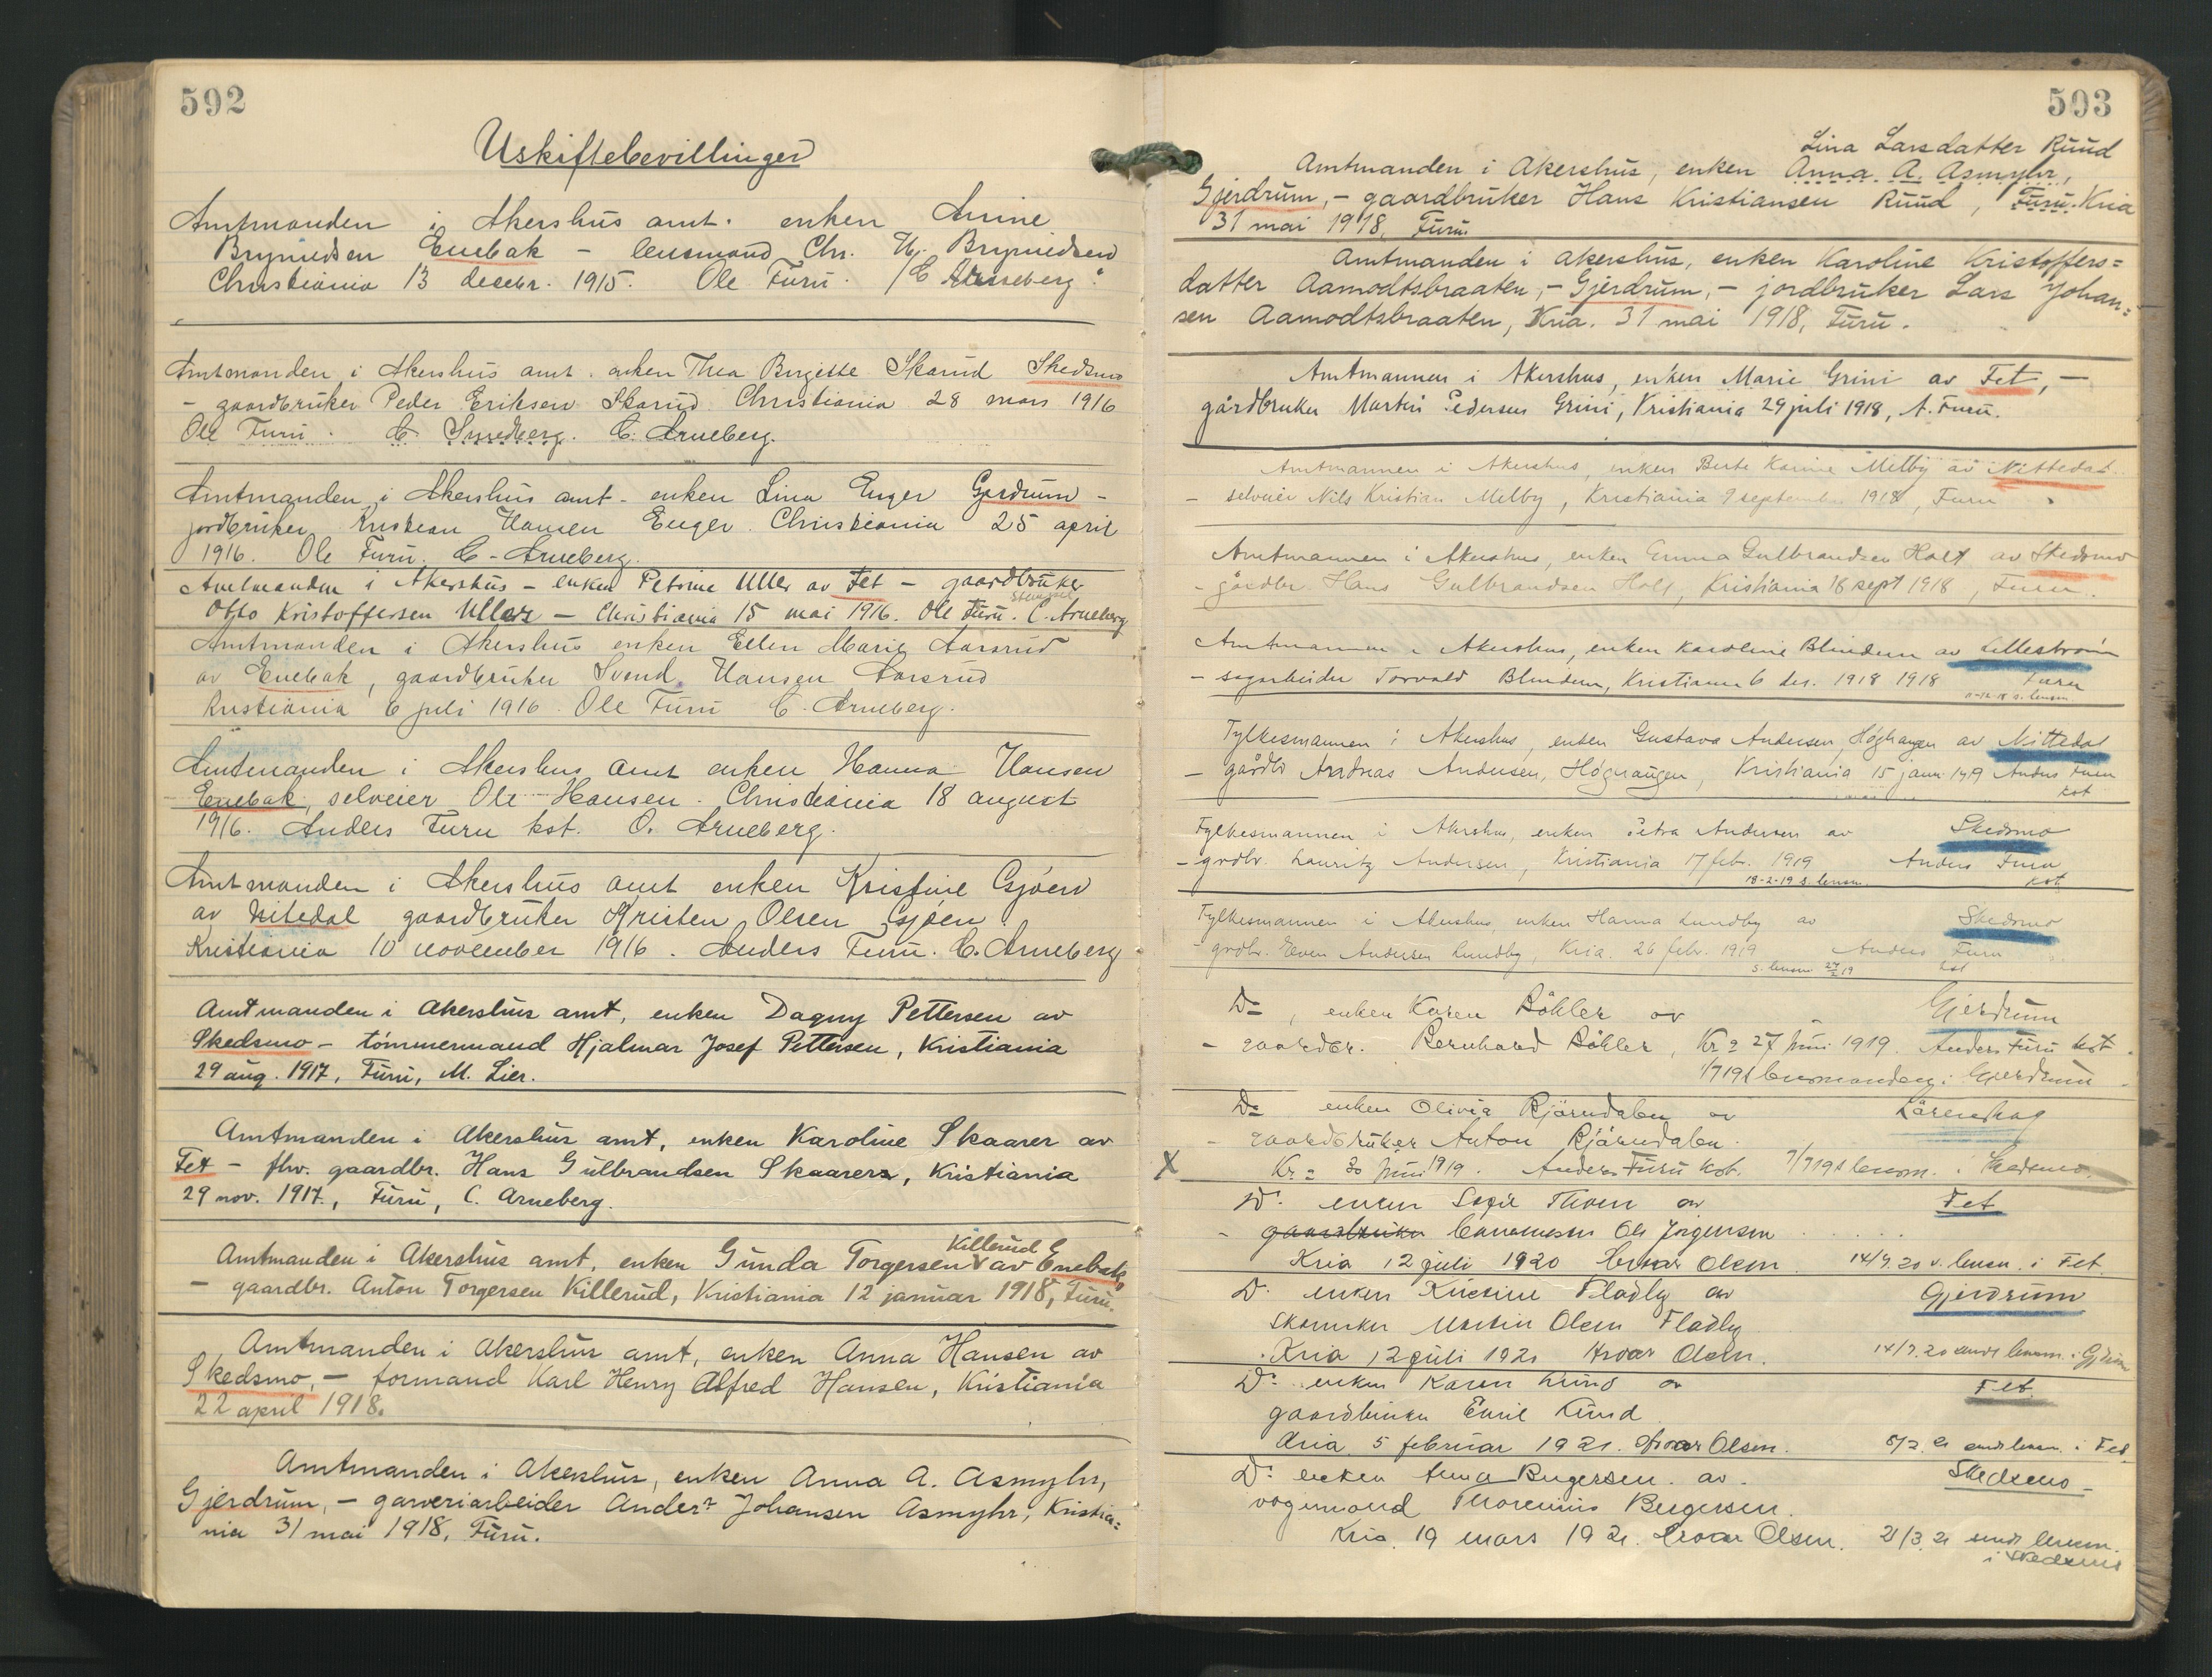 592
Uskiftebevillinger
Amtmanden i Akershus amt. enken Anine
Brynildsen Enebak - lensmand Chr. H. Brynildsen
Christiania 13 decbr. 1915. Ole Furu. / C Arneberg.
Amtmanden i Akershus amt. enken Thea Birgitte Skarud Skedsmo
- gaardbruker Peder Eriksen Skarud Christiania 28 mars 1916
Ole Furu. C. Arneberg.
Amtmanden i Akershus amt - enken Lina Enger Gerdrum -
jordbruker Kristian Hansen Enger. Christiania 25 april
1916. Ole Furu. C. Arneberg.
Amtmanden i Akershus - enken Petrine Uller av Fet - gaardbruker
Otto Kristoffersen Uller - Christiania 15 mai 1916. Ole Furu. C. Arneberg
Amtmanden i Akershus enken Ellen Marie Aarsrud
av Enebak, gaardbruker Svend Hansen Aarsrud
Kristiania 6 juli 1916. Ole Furu C. Arneberg.
Amtmanden i Akershus amt enken Hanna Hansen
Enebak, selveier Ole Hansen. Christiania 18 august
1916. Anders Furu kst. O. Arneberg.
Amtmanden i Akershus amt enken Kristine Gjöen
av Nitedal gaardbruker Kristen Olsen Gjöen
Kristiania 10 november 1916. Anders Furu. C. Arneberg
Amtmanden i Akershus amt, enken Dagny Pettersen av
Skedsmo - tömmermand Hjalmar Josef Pettersen, Kristiania
29 aug. 1917, Furu, M. Lier.
Amtmanden i Akershus amt, enken Karoline Skaarer av
Fet - fhv. gaardbr. Hans Gulbrandsen Skaarer, Kristiania
29 nov. 1917, Furu, C. Arneberg.
Killerud
Amtmanden i Akershus amt, enken Gunda Torgersen av Enebak,
- gaardbr. Anton Torgersen Killerud, Kristiania 12 januar 1918, Furu.
Amtmanden i Akershus amt, enken Anna Hansen av
Skedsmo, - formand Karl Henry Alfred Hansen, Kristiania
22 april 1918.
Amtmanden i Akershus, enken Anna A. Asmyhr,
Gjerdrum, - garveriarbeider Anders Johansen Asmyhr, Kristia=
nia 31 mai 1918, Furu.
593
Lina Larsdatter Ruud
Amtmanden i Akershus, enken Anna A. Asmyhr,
Gjerdrum, - gaardbruker Hans Kristiansen Ruud, Furu. Kria
31 mai 1918, Furu
Amtmanden i Akershus, enken Karoline Kristoffers=
datter Aamodtsbraaten, - Gjerdrum, - jordbruker Lars Johan=
sen Aamodtsbraaten, Kria. 31 mai 1918, Furu.
Amtmannen i Akershus, enken Marie Grini av Fet, -
gårdbruker Martin Pedersen Grini, Kristiania 29 juli 1918, A. Furu.
Amtmannen i Akershus, enken Berte Karine Melby av Nittedal
- selveier Nils Kristian Melby, Kristiania 9 september 1918, Furu
Amtmannen i Akershus, enken Emma Gulbrandsen Holt av Skedsmo
- gårdbr Hans Gulbrandsen Holt, Kristiania 18 sept 1918, Furu.
Amtmannen i Akershus, enken Karoline Blindern av Lillestrøm
- sagarbeider Torvald Blindern, Kristiania 6 des. 1918 1918 Furu
Fylkesmannen i Akershus, enken Gustava Andersen, Höghaugen av Nittedal
- gårdb Andreas Andersen, Höghaugen, Kristiania 15 jann 1919 Anders Furu
kst
Fylkesmannen i Akershus, enken Petra Andersen av Skedsmo
- grdbr. Lauritz Andersen, Kristiania 17 feb. 1919 Anders Furu
18-2-19 s. lensm. kst
Fylkesmannen i Akershus, enken Hanna Lundby av Skedsmo
- grdbr. Even Andersen Lundby, Kria. 26 febr. 1919 Anders Furu
s. lensm 27/2 19 kst
Do, enken Karen Böhler av Gjerdrum
- gaardbr. Bernhard Böhler, Kra 27 juni 1919. Anders Furu kst.
1/7 19 t lensmanden i Gjerdrum
Do enken Olivia Bjärndalen av Lörenskog
- gaardbruker Anton Bjärndalen.
X Kr.a 30 juni 1919. Anders Furu kst. 7/7 19 t lensm. i Skedsmo.
Do enken Sofie Thoen av Fet
- gaardbruker Ole Jörgensen
Kria 12 juli 1920 Hroar Olsen. 14/7. 20 s. lensm. i Fet.
Do enken Kirstine Fladby av Gjerdrum
Skomaker Martin Olsen Fladby
Kria 12 juli 1920 Hroar Olsen. 14/7. 20 sendt lensm. i Gjdrum
Do enken Karen Lund av Fet
gaardbruker Emil Lund
Kria 5 februar 1921. Hroar Olsen. 8/2. 21 sendt lensm. i Fet.
Do enken Anna Birgersen av Skedsmo -
vognmand Thorenius Birgersen.
Kria. 19 mars 1921. Hroar Olsen. 21/3. 21 sendt lensm.
i Skedsmo